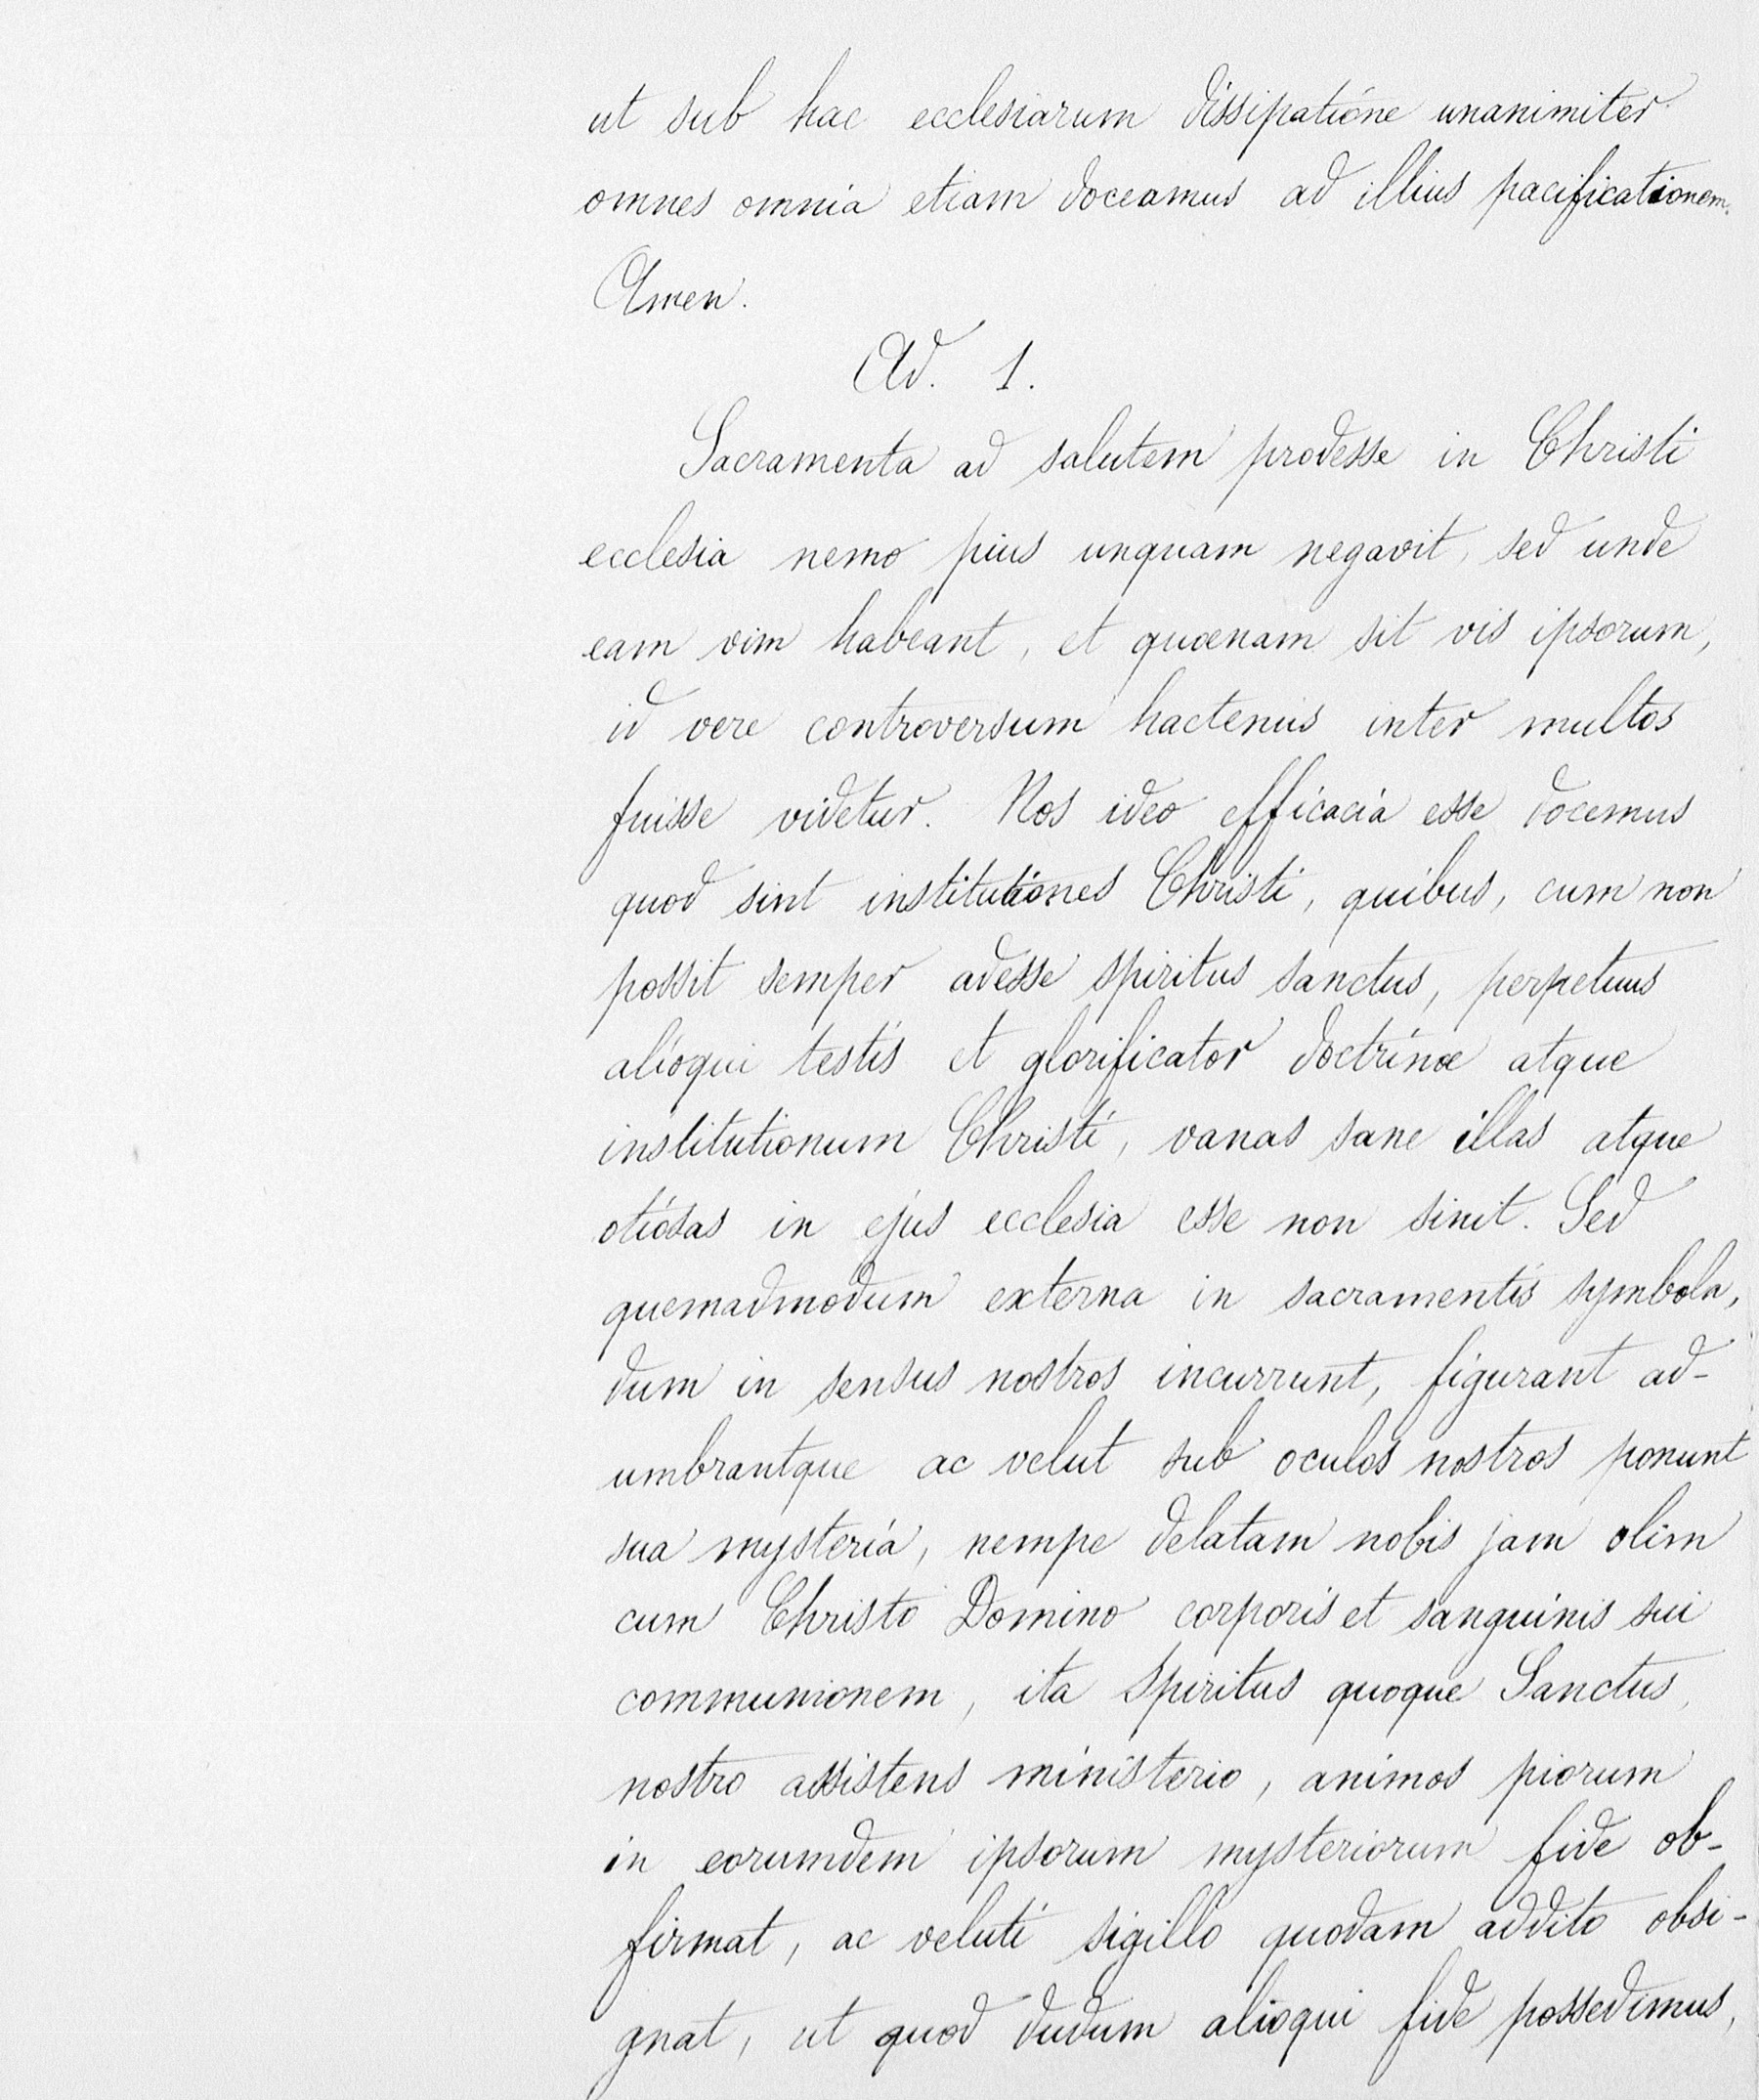 ut sub hac ecclesiarum dissipatione unanimiter
omnes omnia etiam doceamus ad illius pacificationem.
Amen.
Ad. 1.
Sacramenta ad salutem prodesse in Christi
ecclesia nemo pius unquam negavit, sed unde
eam vim habeant, et quænam sit vis ipsorum,
id vere controversum hactenus inter multos
fuisse videtur. Nos ideo efficacia esse docemus
quod sint institutiones Christi, quibus, cum non
possit semper adesse spiritus sanctus, perpetuus
alioqui testis et glorificator doctrinæ atque
institutionum Christi, vanas sane illas atque
otiosas in ejus ecclesia esse non sinit. Sed
quemadmodum externa in sacramentis symbola,
dum in sensus nostros incurrunt, figurant ad-
umbrantque ac velut sub oculos nostros ponunt
sua mysteria, nempe delatam nobis jam olim
cum Christo Domino corporis et sanguinis sui
communionem, ita Spiritus quoque Sanctus,
nostro assistens ministerio, animos piorum
in eorumdem ipsorum mysteriorum fide ob-
firmat, ac veluti sigillo quodam addito obsi-
gnat, ut quod dudum alioqui fide possedimus,